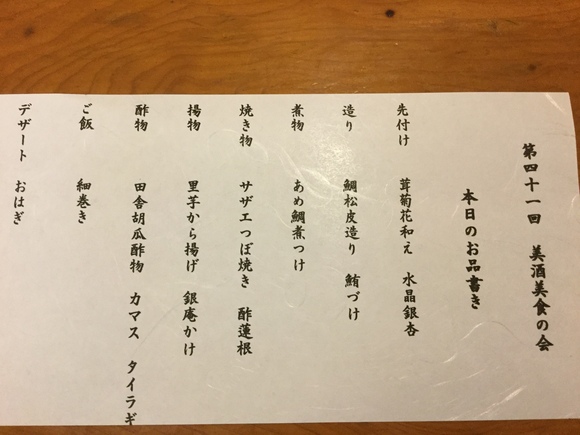 第四十一回　美酒美食の会
本日のお品書き
先付け　茸菊花和え　水晶銀杏
造り　鯛松皮造り　鮪づけ
煮物　あめ鯛煮つけ
焼き物　サザエつぼ焼き　酢蓮根
揚物　里芋から揚げ　銀庵かけ
酢物　田舎胡瓜酢物　カマス　タイラギ
ご飯　細巻き
デザート　おはぎ